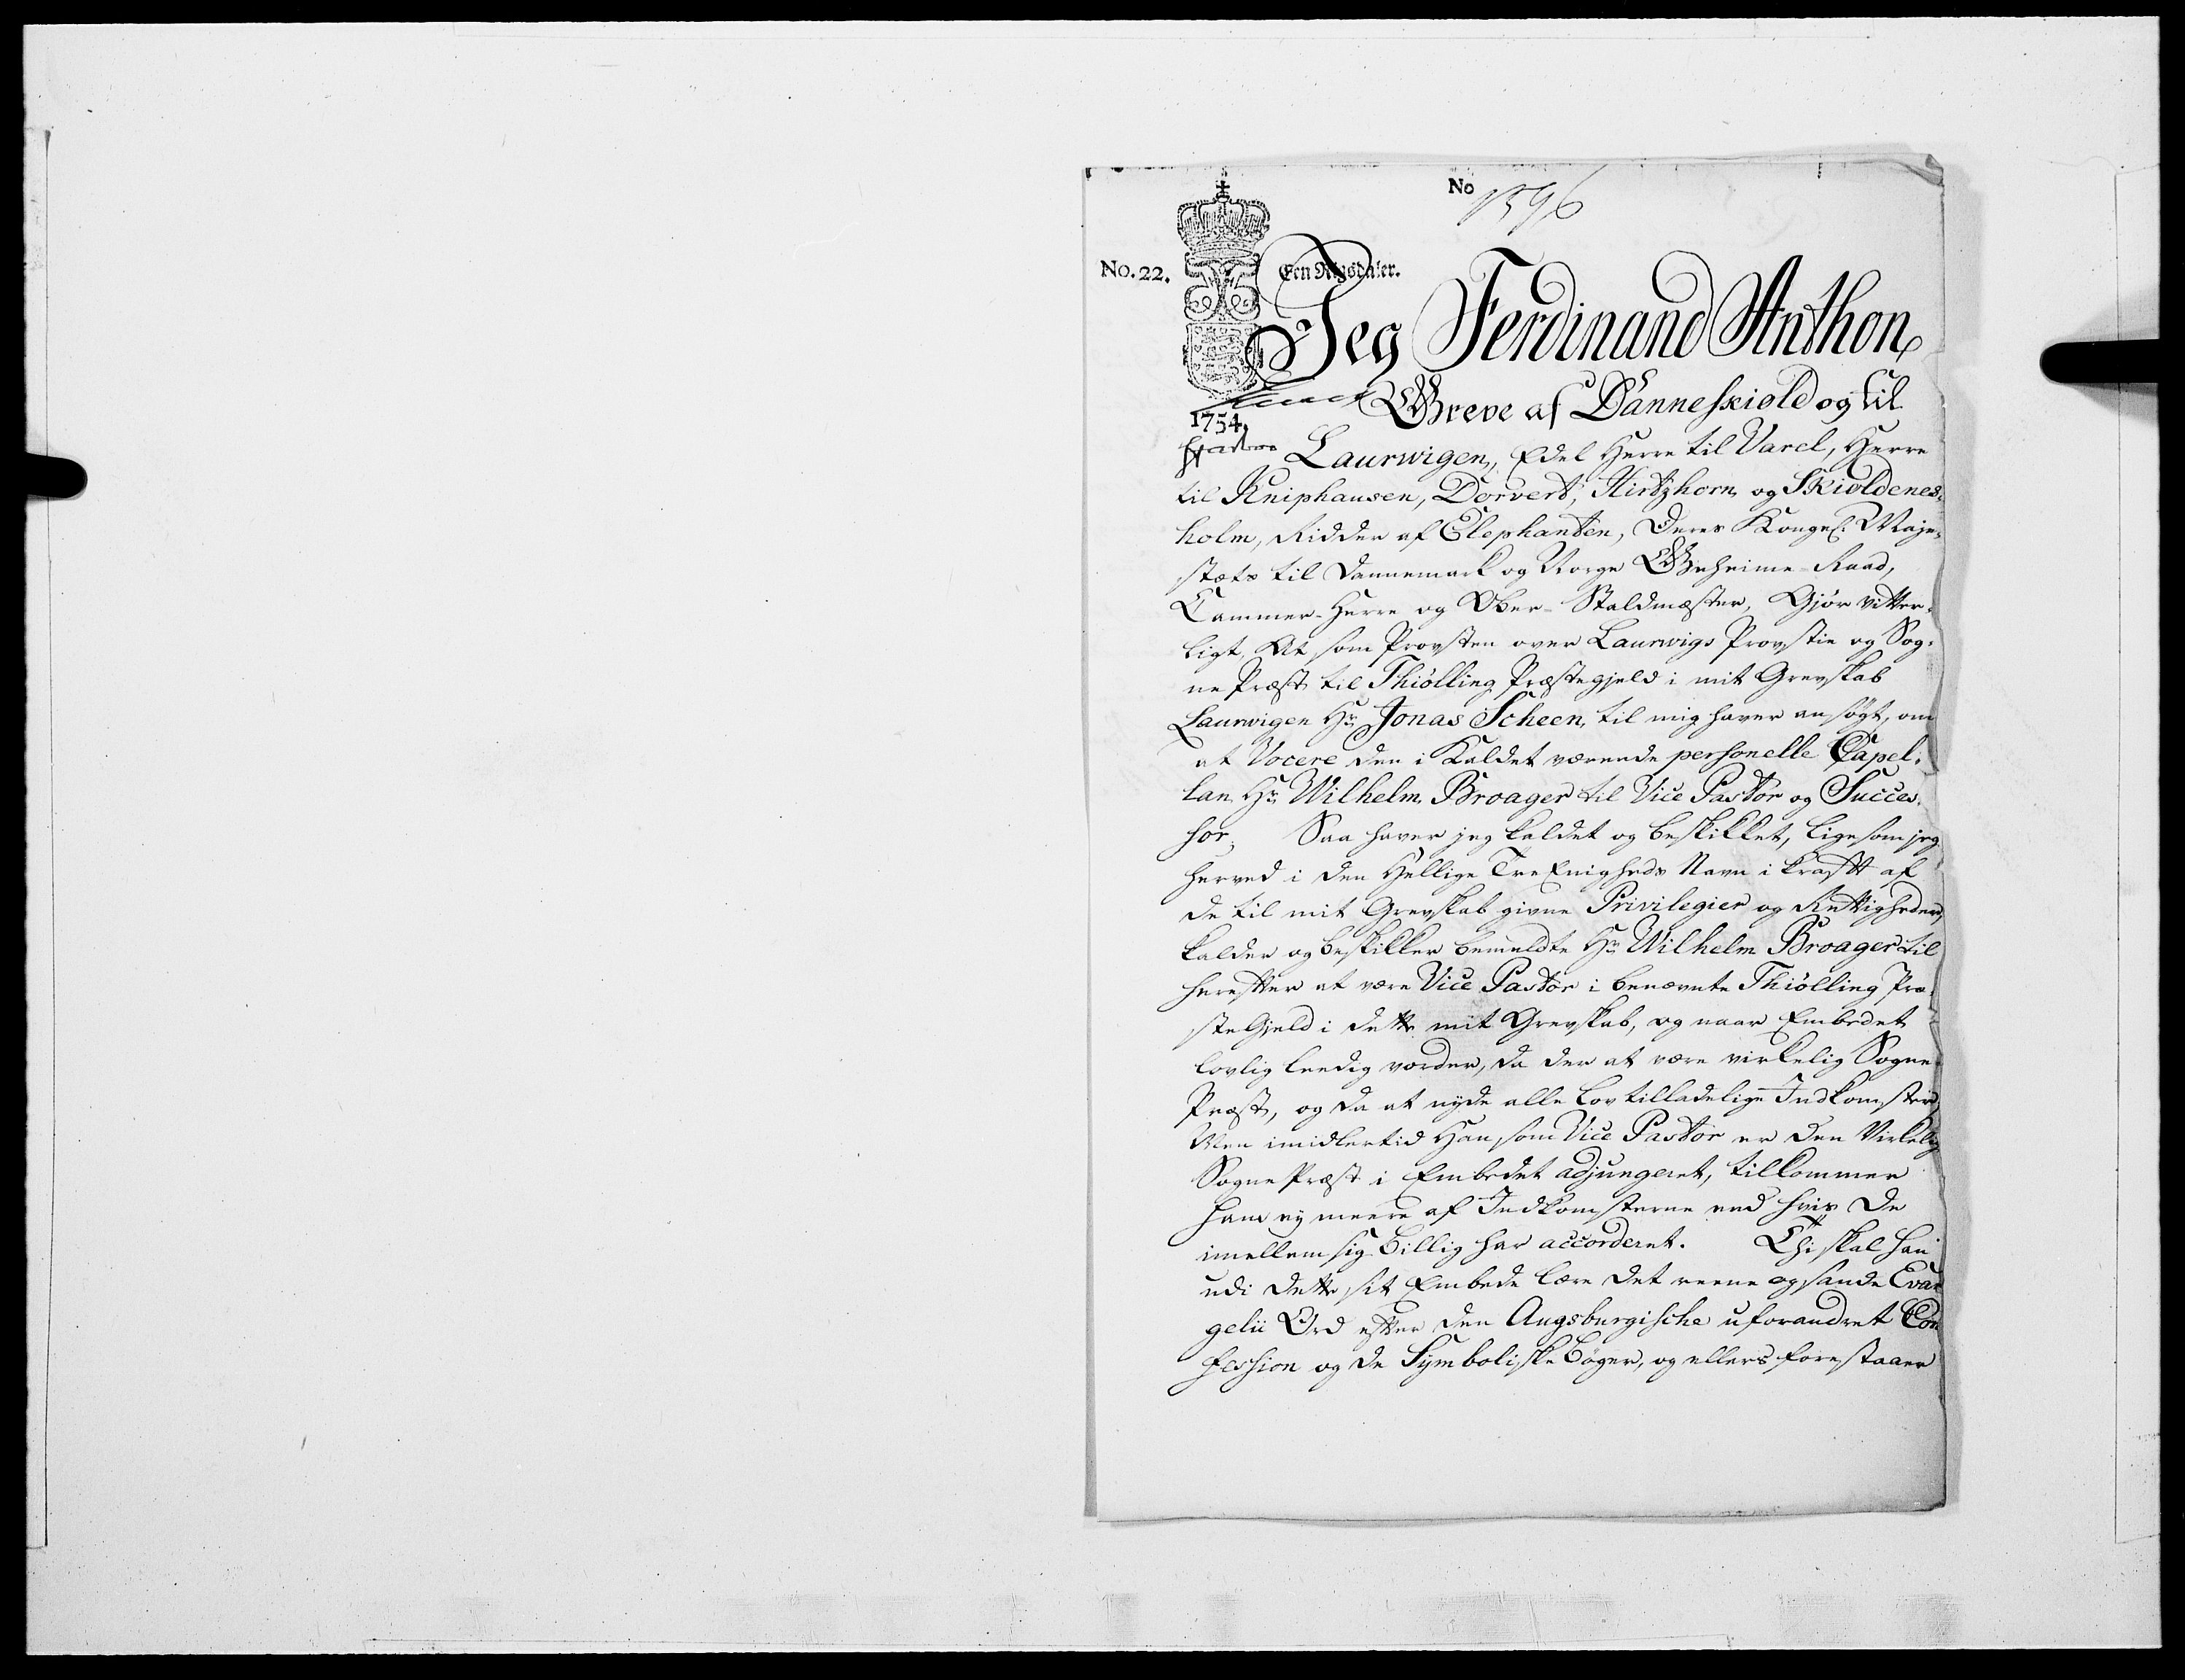 No 1396
No. 22.
Een Rigsdaler.
Jeg Ferdinand Anthon
Greve af Danneskiold og til
1754.
Laurwigen, Edel Herre til Varel, Herre
til Kniphausen, Dorvert, Hirtzhorn og Skioldenes-
holm, Ridder af Elephanten, Deres Kongel: Maje-
stæts til Dannemark og Norge Geheime-Raad,
Cammer-Herre og Ober-Staldmæster, Gjør vitter-
ligt, At som Provsten over Laurwigs Provstie og Sog-
nePræst til Thiølling Præstegjeld i mit Grevskab
Laurwigen Hr: Jonas Scheen, til mig haver ansøgt, om
at Vocere den i Kaldet værende personelle Capel-
lan Hr: Wilhelm Broager til Vice Pastor og Succes-
sor; Saa haver jeg kaldet og beskikket, ligesom jeg
herved i den Hellige TreEnigheds Navn i krafft af
de til mit Grevskab givne Privilegier og Rettigheder,
kalder og beskikker bemeldte Hr: Wilhelm Broager til
herefter at være Vice Pastor i benævnte Thiølling Præ-
steGjeld i dette mit Grevskab, og naar Embedet
lovlig leedig vorder, da der at være virkelig Sogne-
Præst, og da at nyde alle Lovtilladelige Indkomster,
Men imidlertid Han, som Vice Pastor er den Virkelig
SognePræst i Embedet adjungeret, tilkommer
ham ej meere af Indkomsterne end hvis De
imellem sig billig har accorderet. Thi skal han
udi dette sit Embede lære det reene og sande Evan
gelii Ord efter den Augsburgische uforandret Con
fession og de Symboliske Bøger, og ellers forestaaer